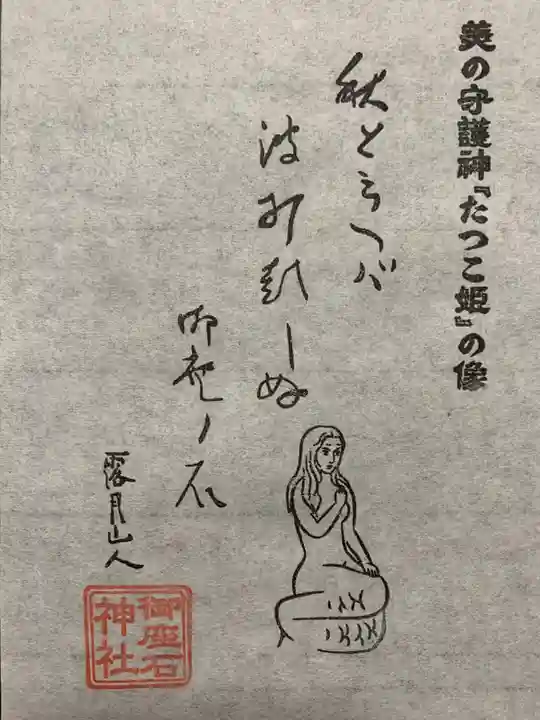 美の守護神『たつこ姫』の像
秋といへバ
波打越しぬ
御座ノ石
露月山人
御座石
神社